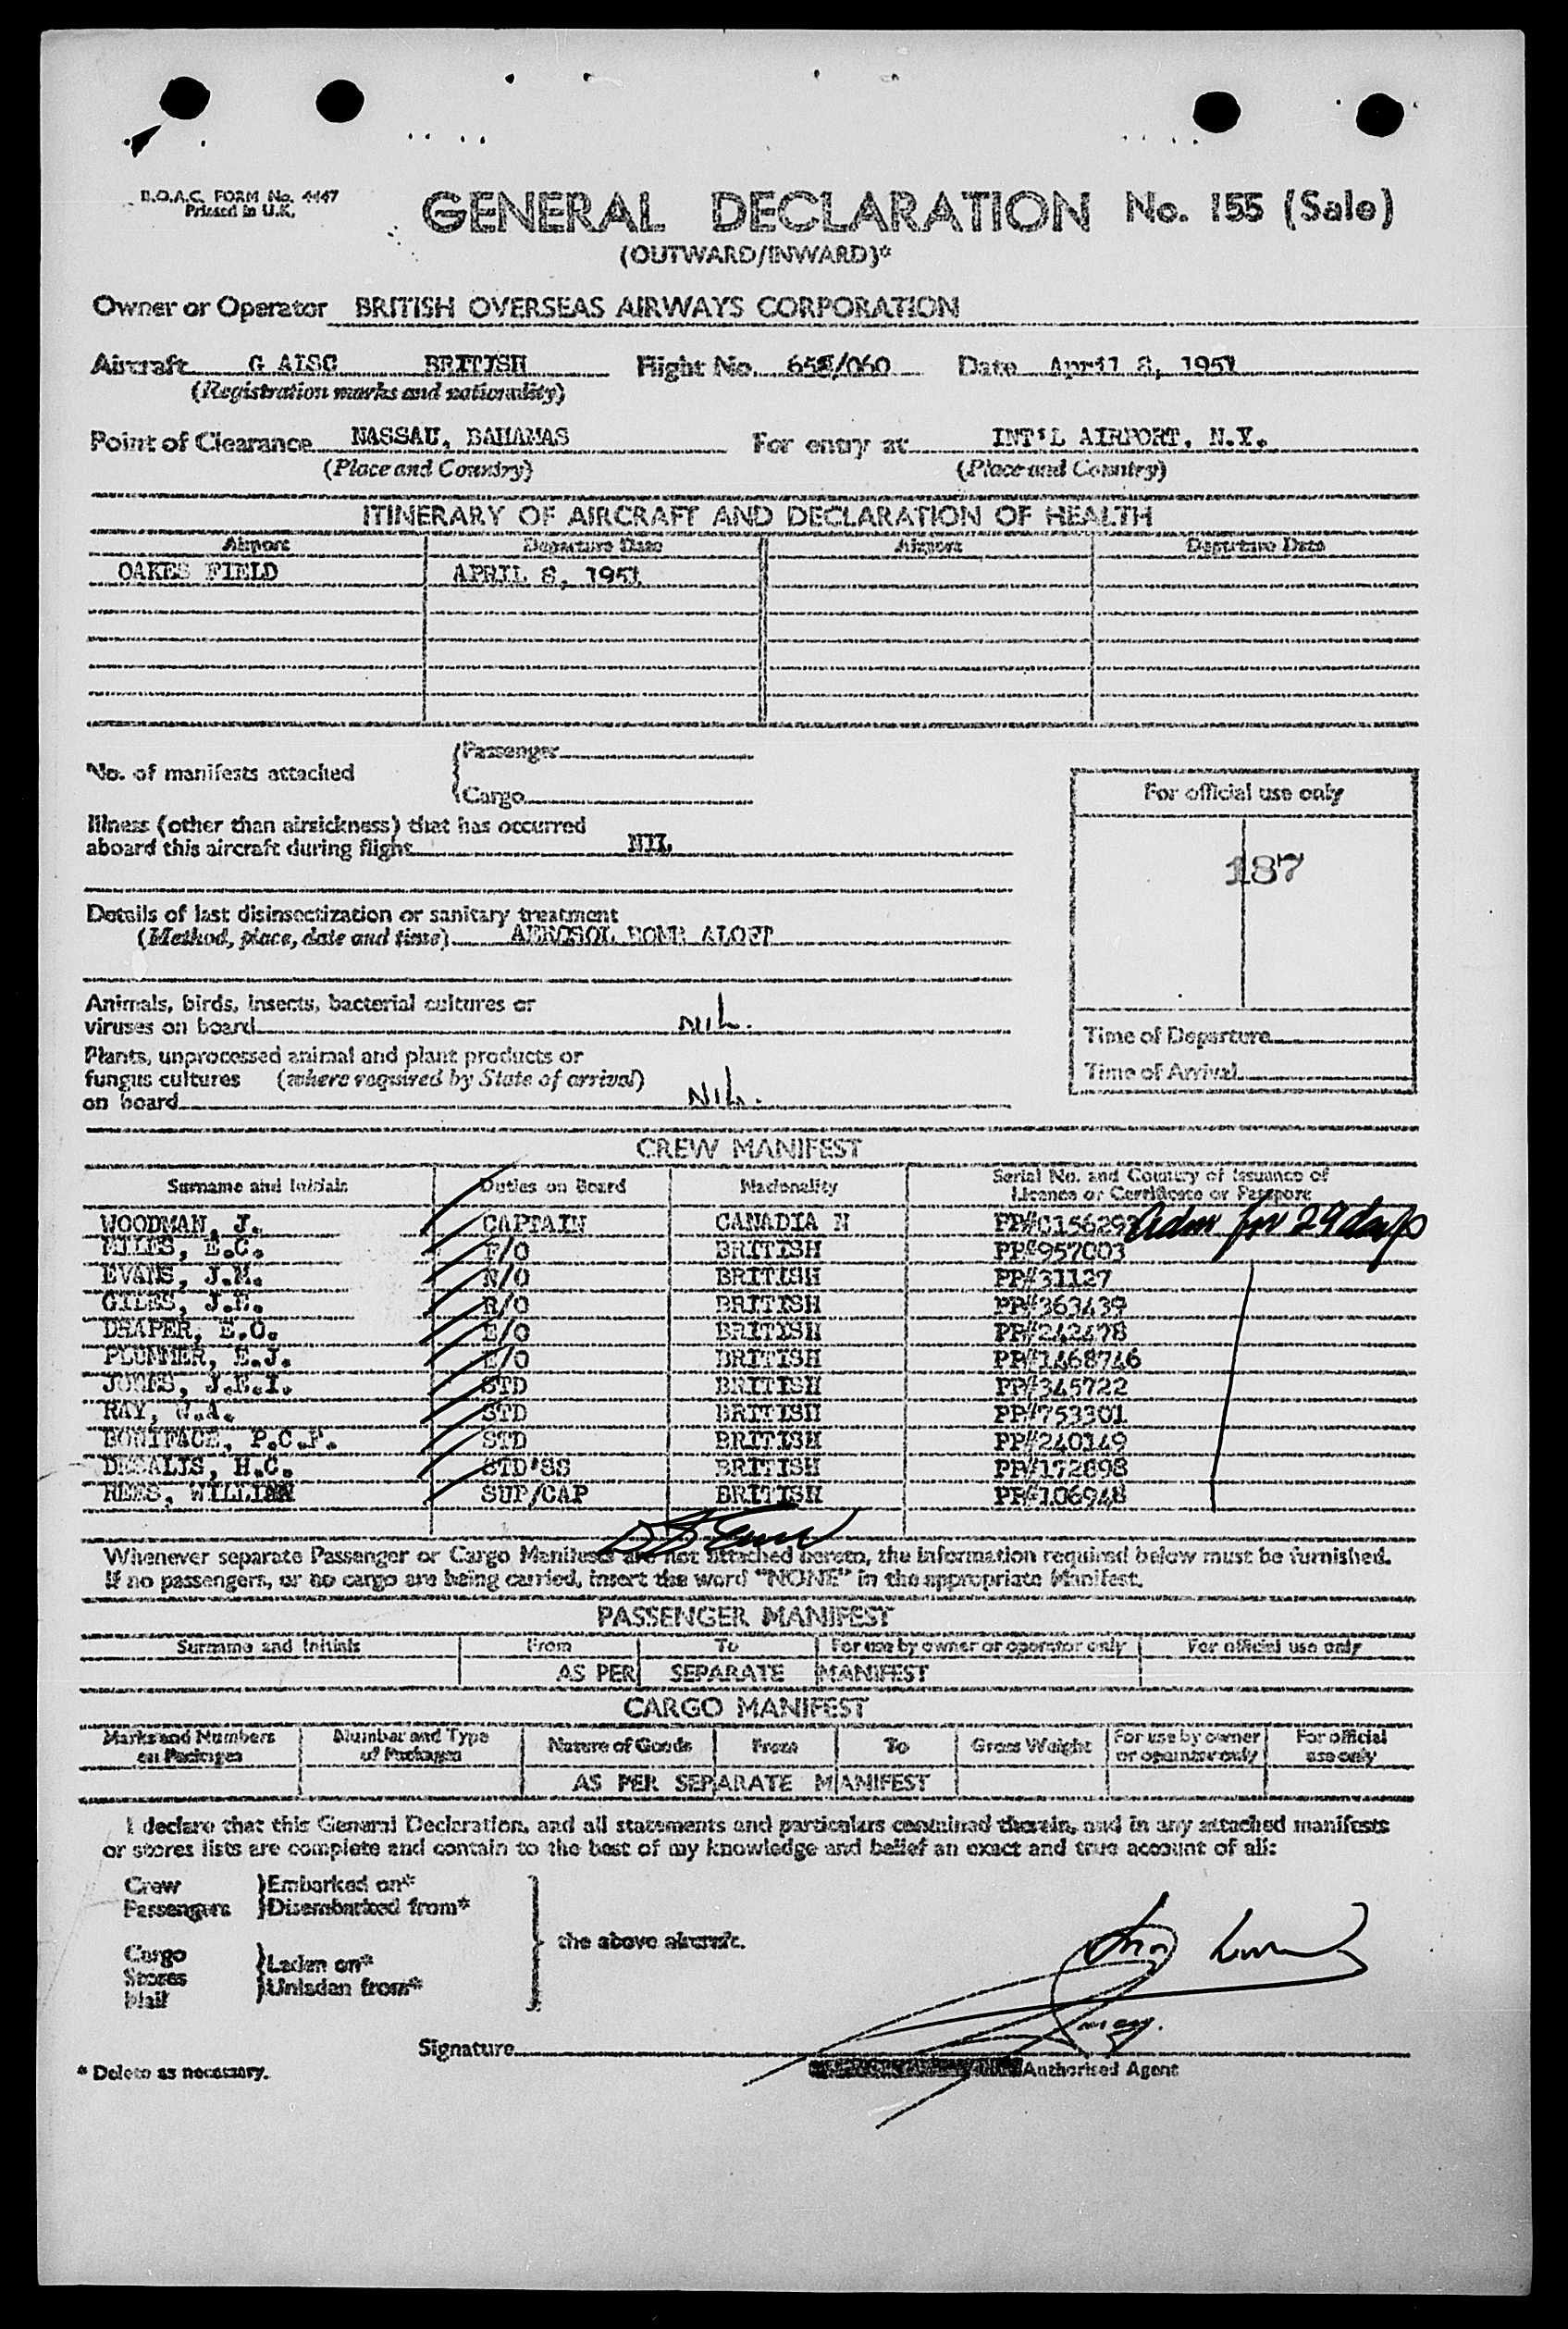 B.O.A.C. FORM No. 4447
Printed in U.K.
GENERAL DECLARATION No. 155 (Sale)
(OUTWARD/INWARD)*
Owner or Operator BRITISH OVERSEAS AIRWAYS CORPORATION
Aircraft G ALSC BRITISH Flight No. 658/060 Date April 8, 1951
(Registration marks and nationality)
Point of Clearance NASSAU, BAHAMAS For entry at INT'L AIRPORT, N.Y.
(Place and Country) (Place and Country)
ITINERARY OF AIRCRAFT AND DECLARATION OF HEALTH
Airport Departure Date Airport Departure Date
OAKES FIELD APRIL 8, 1951
No. of manifests attached
Passenger
Cargo
For official use only
Illness (other than airsickness) that has occurred
aboard this aircraft during flight NIL
187
Details of last disinsectization or sanitary treatment
(Method, place, date and time) AEROSOL BOMB ALOFT
Animals, birds, insects, bacterial cultures or
viruses on board NIL.
Time of Departure
Plants, unprocessed animal and plant products or
fungus cultures (where required by State of arrival)
on board NIL.
Time of Arrival
CREW MANIFEST
Surname and Initials Duties on Board Nationality Serial No. and Country of Issuance of
Licence or Certificate or Passport
WOODMAN, J. CAPTAIN CANADIA N PP#C156293 Adm for 29 days
MILES, E.C. F/O BRITISH PP#957003
EVANS, J.M. N/O BRITISH PP#31127
GILES, J.E. R/O BRITISH PP#363439
DRAPER, E.O. E/O BRITISH PP#242478
PLUMMER, E.J. E/O BRITISH PP#1468746
JONES, J.E.I. STD BRITISH PP#345722
RAY, W.A. STD BRITISH PP#753301
BONIFACE, P.C.F. STD BRITISH PP#240149
DESALIS, H.C. STD'SS BRITISH PP#172898
REES, WILLIAM SUP/CAP BRITISH PP#106948
Whenever separate Passenger or Cargo Manifests are not attached hereto, the information required below must be furnished.
If no passengers, or no cargo are being carried, insert the word "NONE" in the appropriate Manifest.
PASSENGER MANIFEST
Surname and Initials From To For use by owner or operator only For official use only
AS PER SEPARATE MANIFEST
CARGO MANIFEST
Marks and Numbers on Packages Number and Type of Packages Nature of Goods From To Gross Weight For use by owner or operator only For official use only
AS PER SEPARATE MANIFEST
I declare that this General Declaration, and all statements and particulars contained therein, and in any attached manifests
or stores lists are complete and contain to the best of my knowledge and belief an exact and true account of all:
Crew Embarked on*
Passengers Disembarked from*
the above aircraft.
Cargo
Stores Laden on*
Mail Unladen from*
Signature
* Delete as necessary.
Authorised Agent